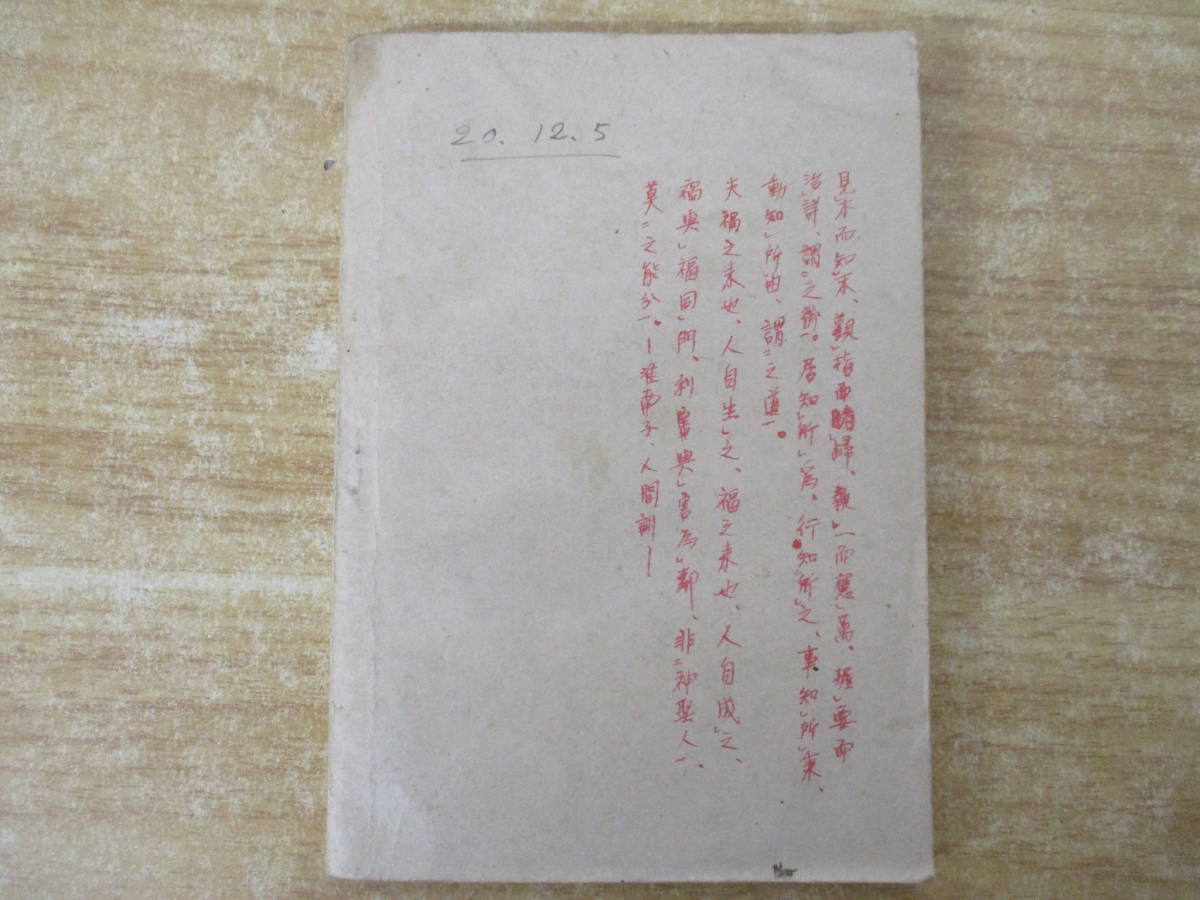 20. 12. 5
見本而知末、觀指而睹歸、執一而應萬、握要而
治詳、謂之術。居知所為、行知所之、事知所秉、
動知所由、謂之道。
夫禍之来也、人自生之、福之来也、人自成之、
禍與福同門、利害與害為鄰、非神聖人、
莫之能分。―淮南子、人間訓―